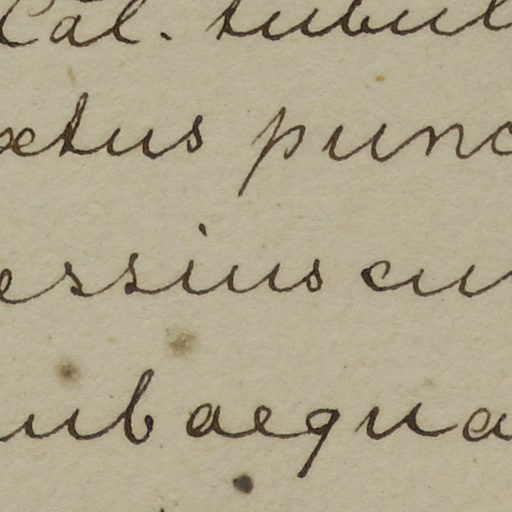 Cal. tubul
etus punc
essiuscu
ubaequa